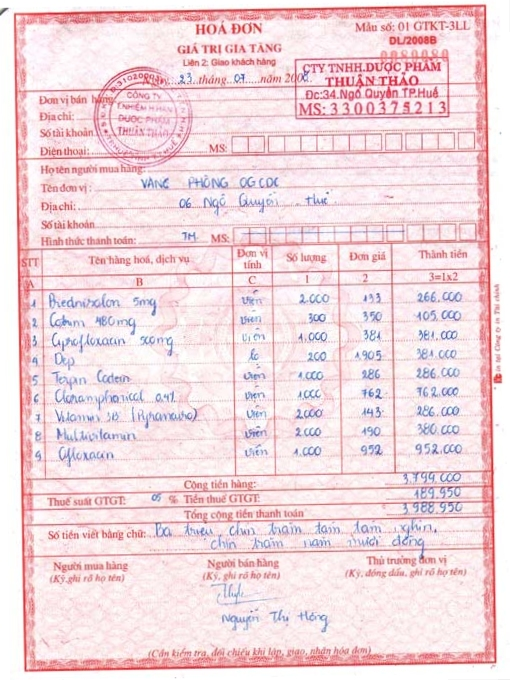 HOÁ ĐƠN
GIÁ TRỊ GIA TĂNG
Liên 2: Giao khách hàng
Mẫu số: 01 GTKT-3LL
DL/2008B
23 tháng 07 năm 2008
CTY TNHH.DƯỢC PHẨM
THUẬN THẢO
Đc:34.Ngô Quyền TP.Huế
MS: 3300375213
CÔNG TY
T.NHIỆM H.HẠN
DƯỢC PHẨM
THUẬN THẢO
Đơn vị bán hàng
Địa chỉ:
Số tài khoản
Điện thoại: MS:
Họ tên người mua hàng:
Tên đơn vị: VĂNG PHÒNG OGCDC
Địa chỉ: 06 Ngô Quyền Huế
Số tài khoản
Hình thức thanh toán: TM. MS:
STT Tên hàng hoá, dịch vụ Đơn vị tính Số lượng Đơn giá Thành tiền
A B C 1 2 3=1x2
1 Prednisolon 5mg Viên 2.000 133 266.000
2 480mg Viên 300 350 105.000
3 500mg Viên 1.000 381 381.000
4 Dep lo 200 1.905 381.000
5 Terpin Codein Viên 1.000 286 286.000
6 Cloramphenical 0.4% Viên 1.000 762 762.000
7 Vitamin 3B Viên 2.000 143 286.000
8 Multivitamin Viên 2.000 190 380.000
9 Ofloxacin Viên 1.000 952 952.000
Cộng tiền hàng: 3.799.000
Thuế suất GTGT: 05 % Tiền thuế GTGT: 189.950
Tổng cộng tiền thanh toán 3.988.950
Số tiền viết bằng chữ: Ba triệu, chín trăm tám tám nghìn,
chín trăm năm mươi đồng
Người mua hàng Người bán hàng Thủ trưởng đơn vị
(Ký, ghi rõ họ tên) (Ký, ghi rõ họ tên) (Ký, đóng dấu, ghi rõ họ tên)
Nguyễn Thị Hồng
(Cần kiểm tra, đối chiếu khi lập, giao, nhận hóa đơn)
in tại Công ty in Tài chính